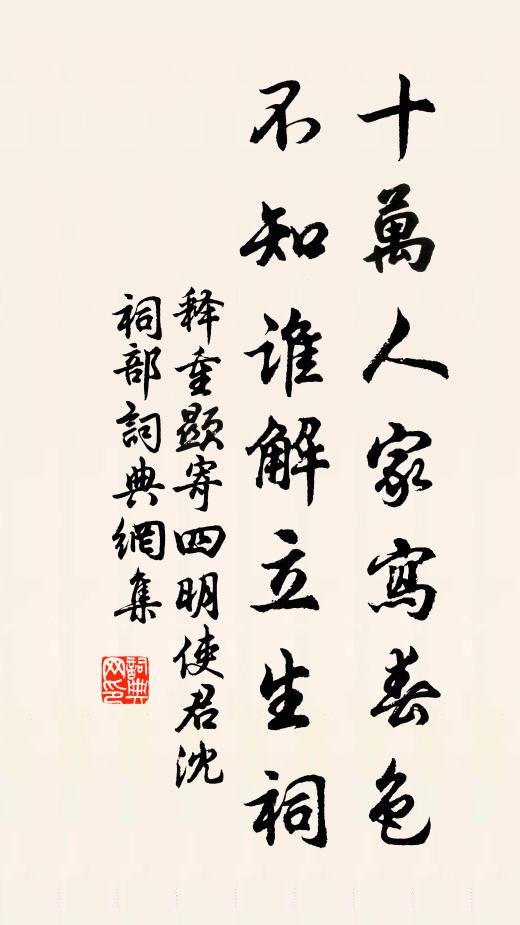 十萬人家寫春色
不知谁解立生祠
释重顯寄四明使君沈
祠部詞典網集
詞典网印